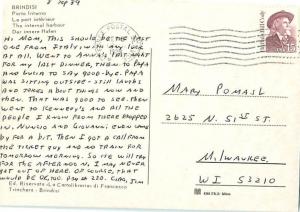 8 Sep 89
BRINDISI
Porto Interno
Le port intérieur
The internal harbour
Der innere Hafen
Hi Mom, This should be the last
one from Italy, with any luck
at all. Went to Anna's last nat
for my last dinner, then to Papa
and Lucia to say good-bye. Papa
was sitting outside - still laughs
and takes about things now and
then. That was good to see. Then
went to Kennedy's and all the
people I know from there dropped
in. Nunzio and Giovanni even came
by for a bit. Then I got a call from
the ticket guy and no train for
tomorrow morning. So its the train
for the afternoon. I may never
get out of here. Of course, that
would be OK, too. Page 220. Ciao, Jim
Ed. Riservata «La Cartolibreria di Francesco
Trinchera - Brindisi
Mary Pomasl
2625 N. 51 st St.
Milwaukee,
WI 53210
USA
15